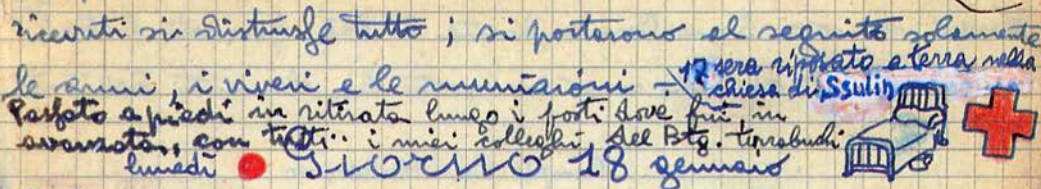 ricevuti si distrusse tutto; si portarono al seguito solamente
le armi, i viveri e le munizioni –
17 sera riposato a terra nella
chiesa di Ssulin
Passato a piedi in ritirata lungo i posti dove fui, in
avanzata, con tutti.. i miei colleghi del Btg.
lunedì Giorno 18 gennaio